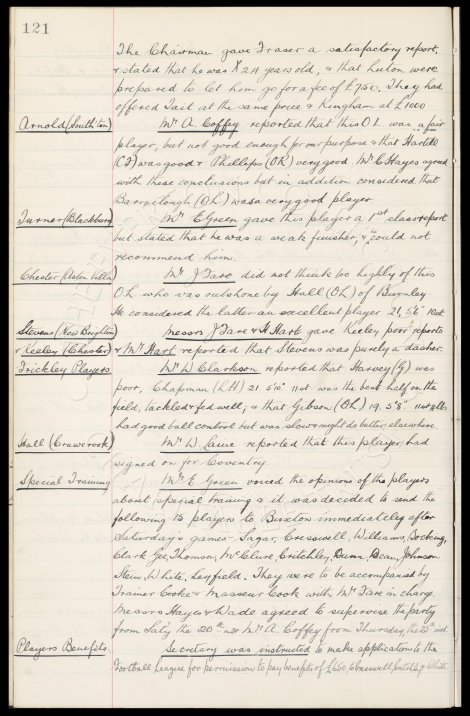 121
The Chairman gave Fraser a satisfactory report,
& stated that he was 24 years old, & that Luton were
prepared to let him go for a fee of £750. They had
offered Tait at the same price & Kingham at £1000
Arnold (South'ton) Mr A. Coffey reported that this O.L. was a fair
player, but not good enough for our purpose & that Hartill
(CF) was good & Phillips (OR) very good. Mr C Hayes agreed
with these conclusions but in addition considered that
Barraclough (OL) was a very good player.
Turner (Blackburn) Mr E Green gave this player a 1st class report
but stated that he was a weak finisher, & "could not
recommend him.
Chester (Aston Villa) Mr J Fare did not think too highly of this
OL who was outshone by Hall (OL) of Burnley
He considered the latter an excellent player 21, 5'6" 10st.
Stevens (New Brighton) Messrs J Fare & H Hart gave Keeley poor reports
& Keeley (Chester) & Mr Hart reported that Stevens was purely a dasher.
Frickley Players Mr W Clarkson reported that Harvey (G) was
poor, Chapman (LH) 21. 5'10" 11st was the best half on the
field, tackled & fed well, & that Gibson (OL) 19. 5'8"
had good ball control but was slow & might do better elsewhere
Hall (Crawcrook) Mr W. Cave reported that this player had
signed on for Coventry.
Special Training Mr E. Green voiced the opinions of the players
about special training & it was decided to send the
following 15 players to Buxton immediately after
Saturday's games - Sagar, Cresswell, Williams, Bocking,
Clark Gee, Thomson, McClure, Critchley, Dunn, Dean, Johnson
Stein, White, Leyfield. They were to be accompanied by
Trainer Cooke & Masseur Cook with Mr Fare in charge
Messrs Hayes & Wade agreed to supervise the party
from Sat'y the 20th inst Mr A. Coffey from Thursday, the 25th inst.
Players Benefits. Secretary was instructed to make application to the
Football League for permission to pay benefits of £650, to Cresswell, Critchley, & White